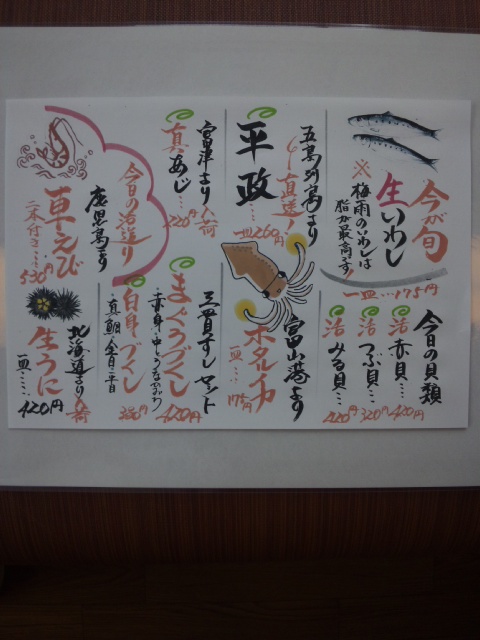 今が旬
生いわし
※梅雨のいわしは
脂が最高です!
一皿…175円
今日の貝類
活 赤貝…420円
活 つぶ貝…320円
活 みる貝…420円
五島列島より
直送!
平政
一皿260円
富山港より
ホタルイカ
一皿…175円
宮津より入荷
真あじ…220円
三貫すし セット
まぐろづくし
420円
白身づくし
・真鯛
今日の活造り
鹿児島より
草えび
二本付き…530円
北海道より入荷
生うに
一皿……420円